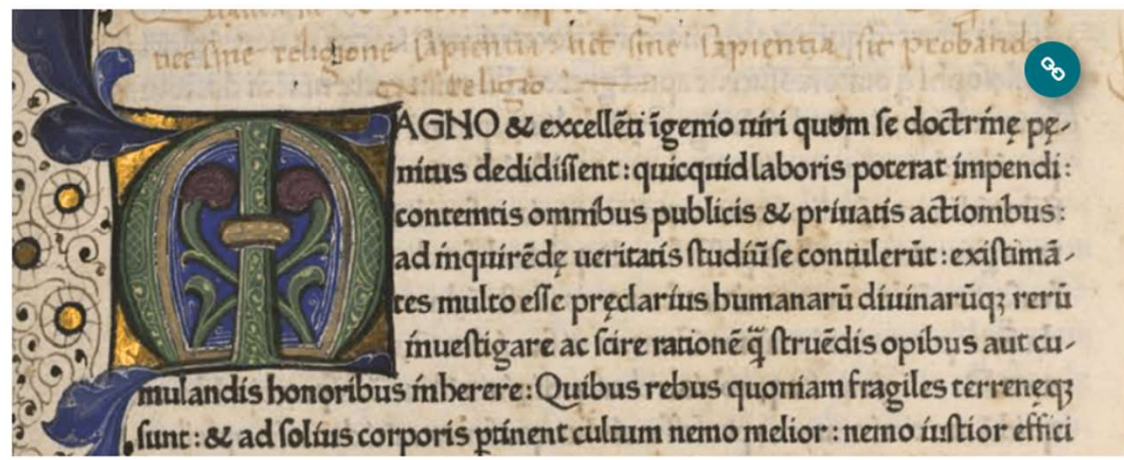 nec sine religione sapientia: nec sine sapientia sit probanda
religio
MAGNO & excellēti īgenio uiri quom se doctrinę pę-
nitus dedidissent: quicquid laboris poterat impendi:
contemtis omnibus publicis & priuatis actionibus:
ad inquirēdę ueritatis studiū se contulerūt: existimā-
tes multo esse pręclarius humanarū diuinarūqꝫ rerū
inuestigare ac scire rationē q̄̈ struēdis opibus aut cu-
mulandis honoribus inherere: Quibus rebus quoniam fragiles terreneqꝫ
sunt: & ad solius corporis ꝑtinent cultum nemo melior: nemo iustior effici